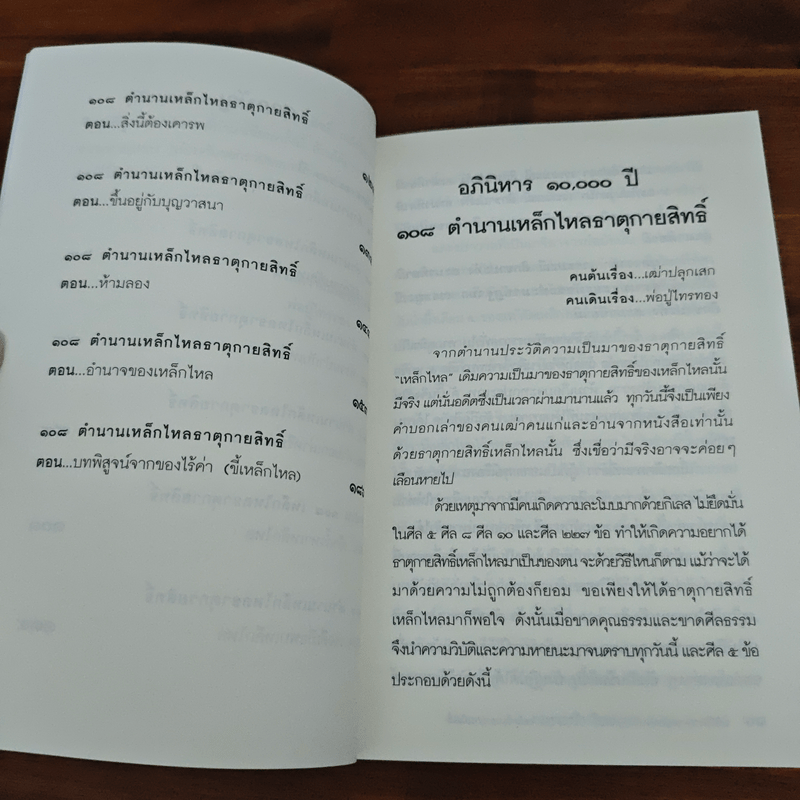 ๑๐๘ ตำนานเหล็กไหลธาตุกายสิทธิ์
ตอน...สิ่งนี้ต้องเคารพ
๑๐๘ ตำนานเหล็กไหลธาตุกายสิทธิ์
ตอน...ขึ้นอยู่กับบุญวาสนา
๑๐๘ ตำนานเหล็กไหลธาตุกายสิทธิ์
ตอน...ห้ามลอง
๑๐๘ ตำนานเหล็กไหลธาตุกายสิทธิ์
ตอน...อำนาจของเหล็กไหล
๑๐๘ ตำนานเหล็กไหลธาตุกายสิทธิ์
ตอน...บทพิสูจน์จากของไร้ค่า (ขี้เหล็กไหล)
อภินิหาร ๑๐,๐๐๐ ปี
๑๐๘ ตำนานเหล็กไหลธาตุกายสิทธิ์
คนต้นเรื่อง...เฒ่าปลุกเสก
คนเดินเรื่อง...พ่อปู่ไทรทอง
จากตำนานประวัติความเป็นมาของธาตุกายสิทธิ์
"เหล็กไหล" เดิมความเป็นมาของธาตุกายสิทธิ์ของเหล็กไหลนั้น
มีจริง แต่นั่นอดีตซึ่งเป็นเวลาผ่านมานานแล้ว ทุกวันนี้จึงเป็นเพียง
คำบอกเล่าของคนเฒ่าคนแก่และอ่านจากหนังสือเท่านั้น
ด้วยธาตุกายสิทธิ์เหล็กไหลนั้น ซึ่งเชื่อว่ามีจริงอาจจะค่อยๆ
เลือนหายไป
ด้วยเหตุมาจากมีคนเกิดความละโมบมากด้วยกิเลส ไม่ยึดมั่น
ในศีล ๕ ศีล ๘ ศีล ๑๐ และศีล ๒๒๗ ข้อ ทำให้เกิดความอยากได้
ธาตุกายสิทธิ์เหล็กไหลมาเป็นของตน จะด้วยวิธีไหนก็ตาม แม้ว่าจะได้
มาด้วยความไม่ถูกต้องก็ยอม ขอเพียงให้ได้ธาตุกายสิทธิ์
เหล็กไหลมาก็พอใจ ดังนั้นเมื่อขาดคุณธรรมและขาดศีลธรรม
จึงนำความวิบัติและความหายนะมาจนตราบทุกวันนี้ และศีล ๕ ข้อ
ประกอบด้วยดังนี้